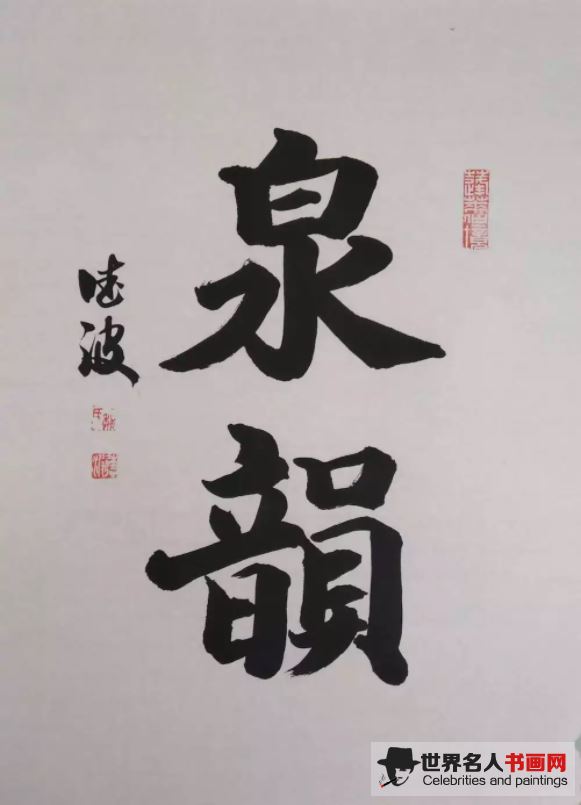 泉
韻
德波
世界名人书画网
Celebrities and paintings